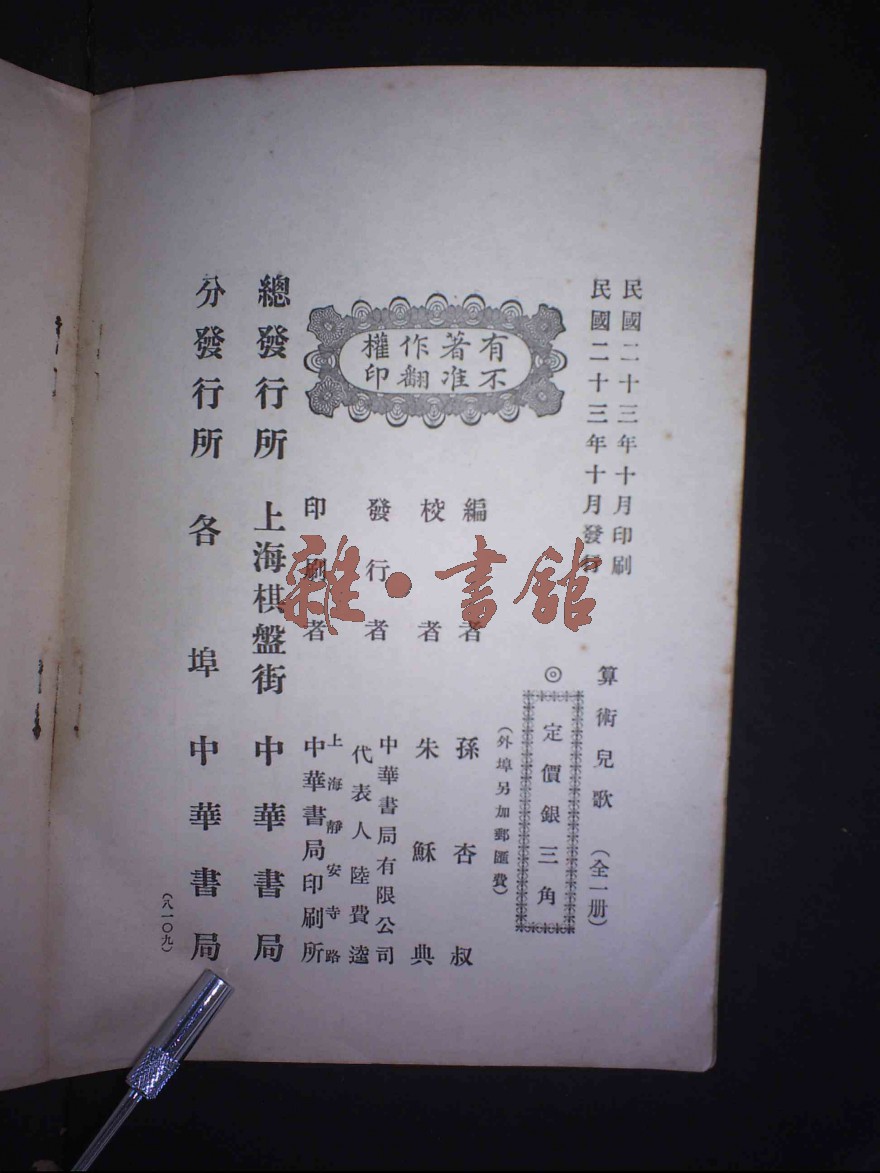 民國二十三年十月印刷
民國二十三年十月發行
算術兒歌（全一册）
◎定價銀三角
（外埠另加郵匯費）
有著作權
不准翻印
編者 孫杏叔
校者 朱穌典
發行者 中華書局有限公司
代表人陸費逵
印刷者 上海靜安寺路
中華書局印刷所
總發行所 上海棋盤街 中華書局
分發行所 各埠 中華書局
（八一〇九）
雜·書館